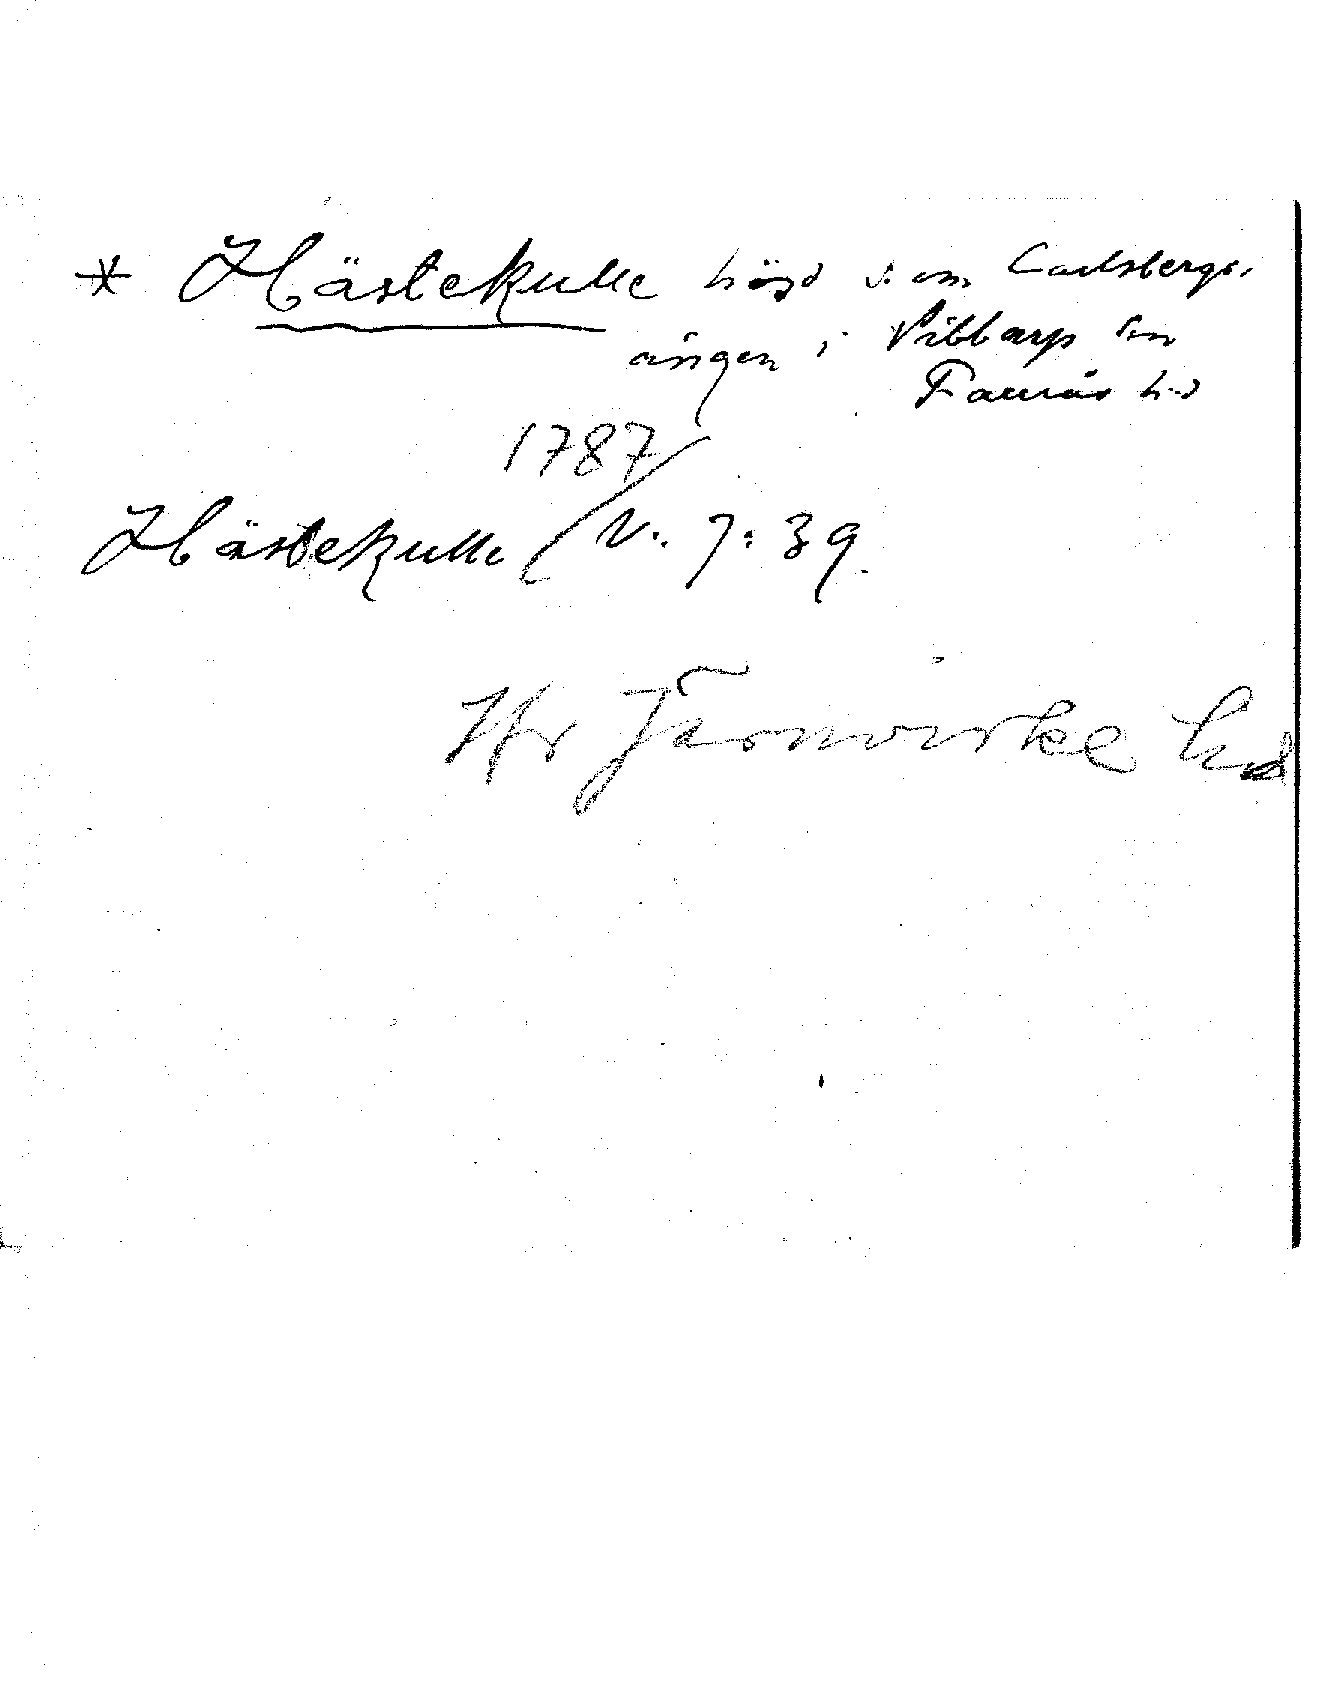 * Hästekulle höjd s. om Carlsbergs-
ängen i Vibbarp sn
Faurås hd
1787
Hästekulle / V. 7: 39.
Hr Järnvirke hd